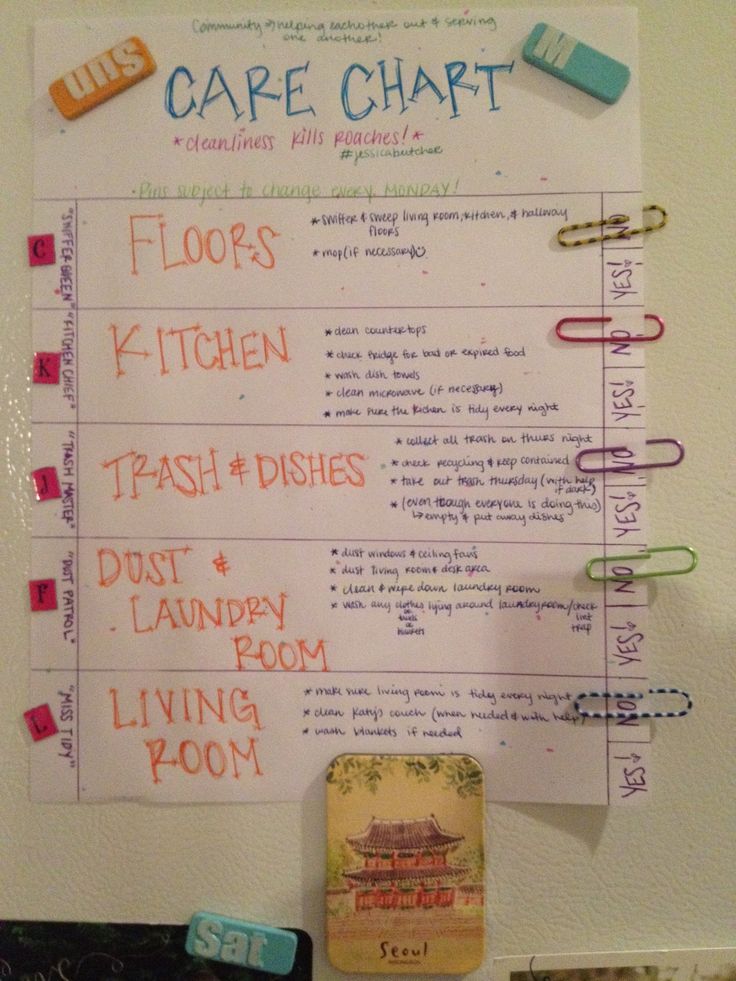 Community => helping eachother out & serving
one another!
uns
M
CARE CHART
*cleanliness kills roaches!*
#jessicabutcher
• Pins subject to change every MONDAY!
C
"SWIFFER QUEEN"
FLOORS
* swiffer & sweep living room, kitchen, & hallway
floors
* mop (if necessary)
NO
YES!
K
"KITCHEN CHIEF"
KITCHEN
* clean countertops
* check fridge for bad or expired food
* wash dish towels
* clean microwave (if necessary)
* make sure the kitchen is tidy every night
NO
YES!
J
"TRASH MASTER"
TRASH & DISHES
* collect all trash on thurs night
* check recycling & keep contained
* take out trash thursday (with help
if dark)
* (even though everyone is doing this)
↳ empty & put away dishes
NO
YES!
F
"DUST PATROL"
DUST &
LAUNDRY
ROOM
* dust windows & ceiling fans
* dust living room & desk area
* clean & wipe down laundry room
* wash any clothes lying around laundry room/check
or
towels
or
blankets
lint
trap
NO
YES!
L
"MISS TIDY"
LIVING
ROOM
* make sure living room is tidy every night
* clean Katy's couch (when needed & with help)
* wash blankets if needed
NO
YES!
Seoul
Sat